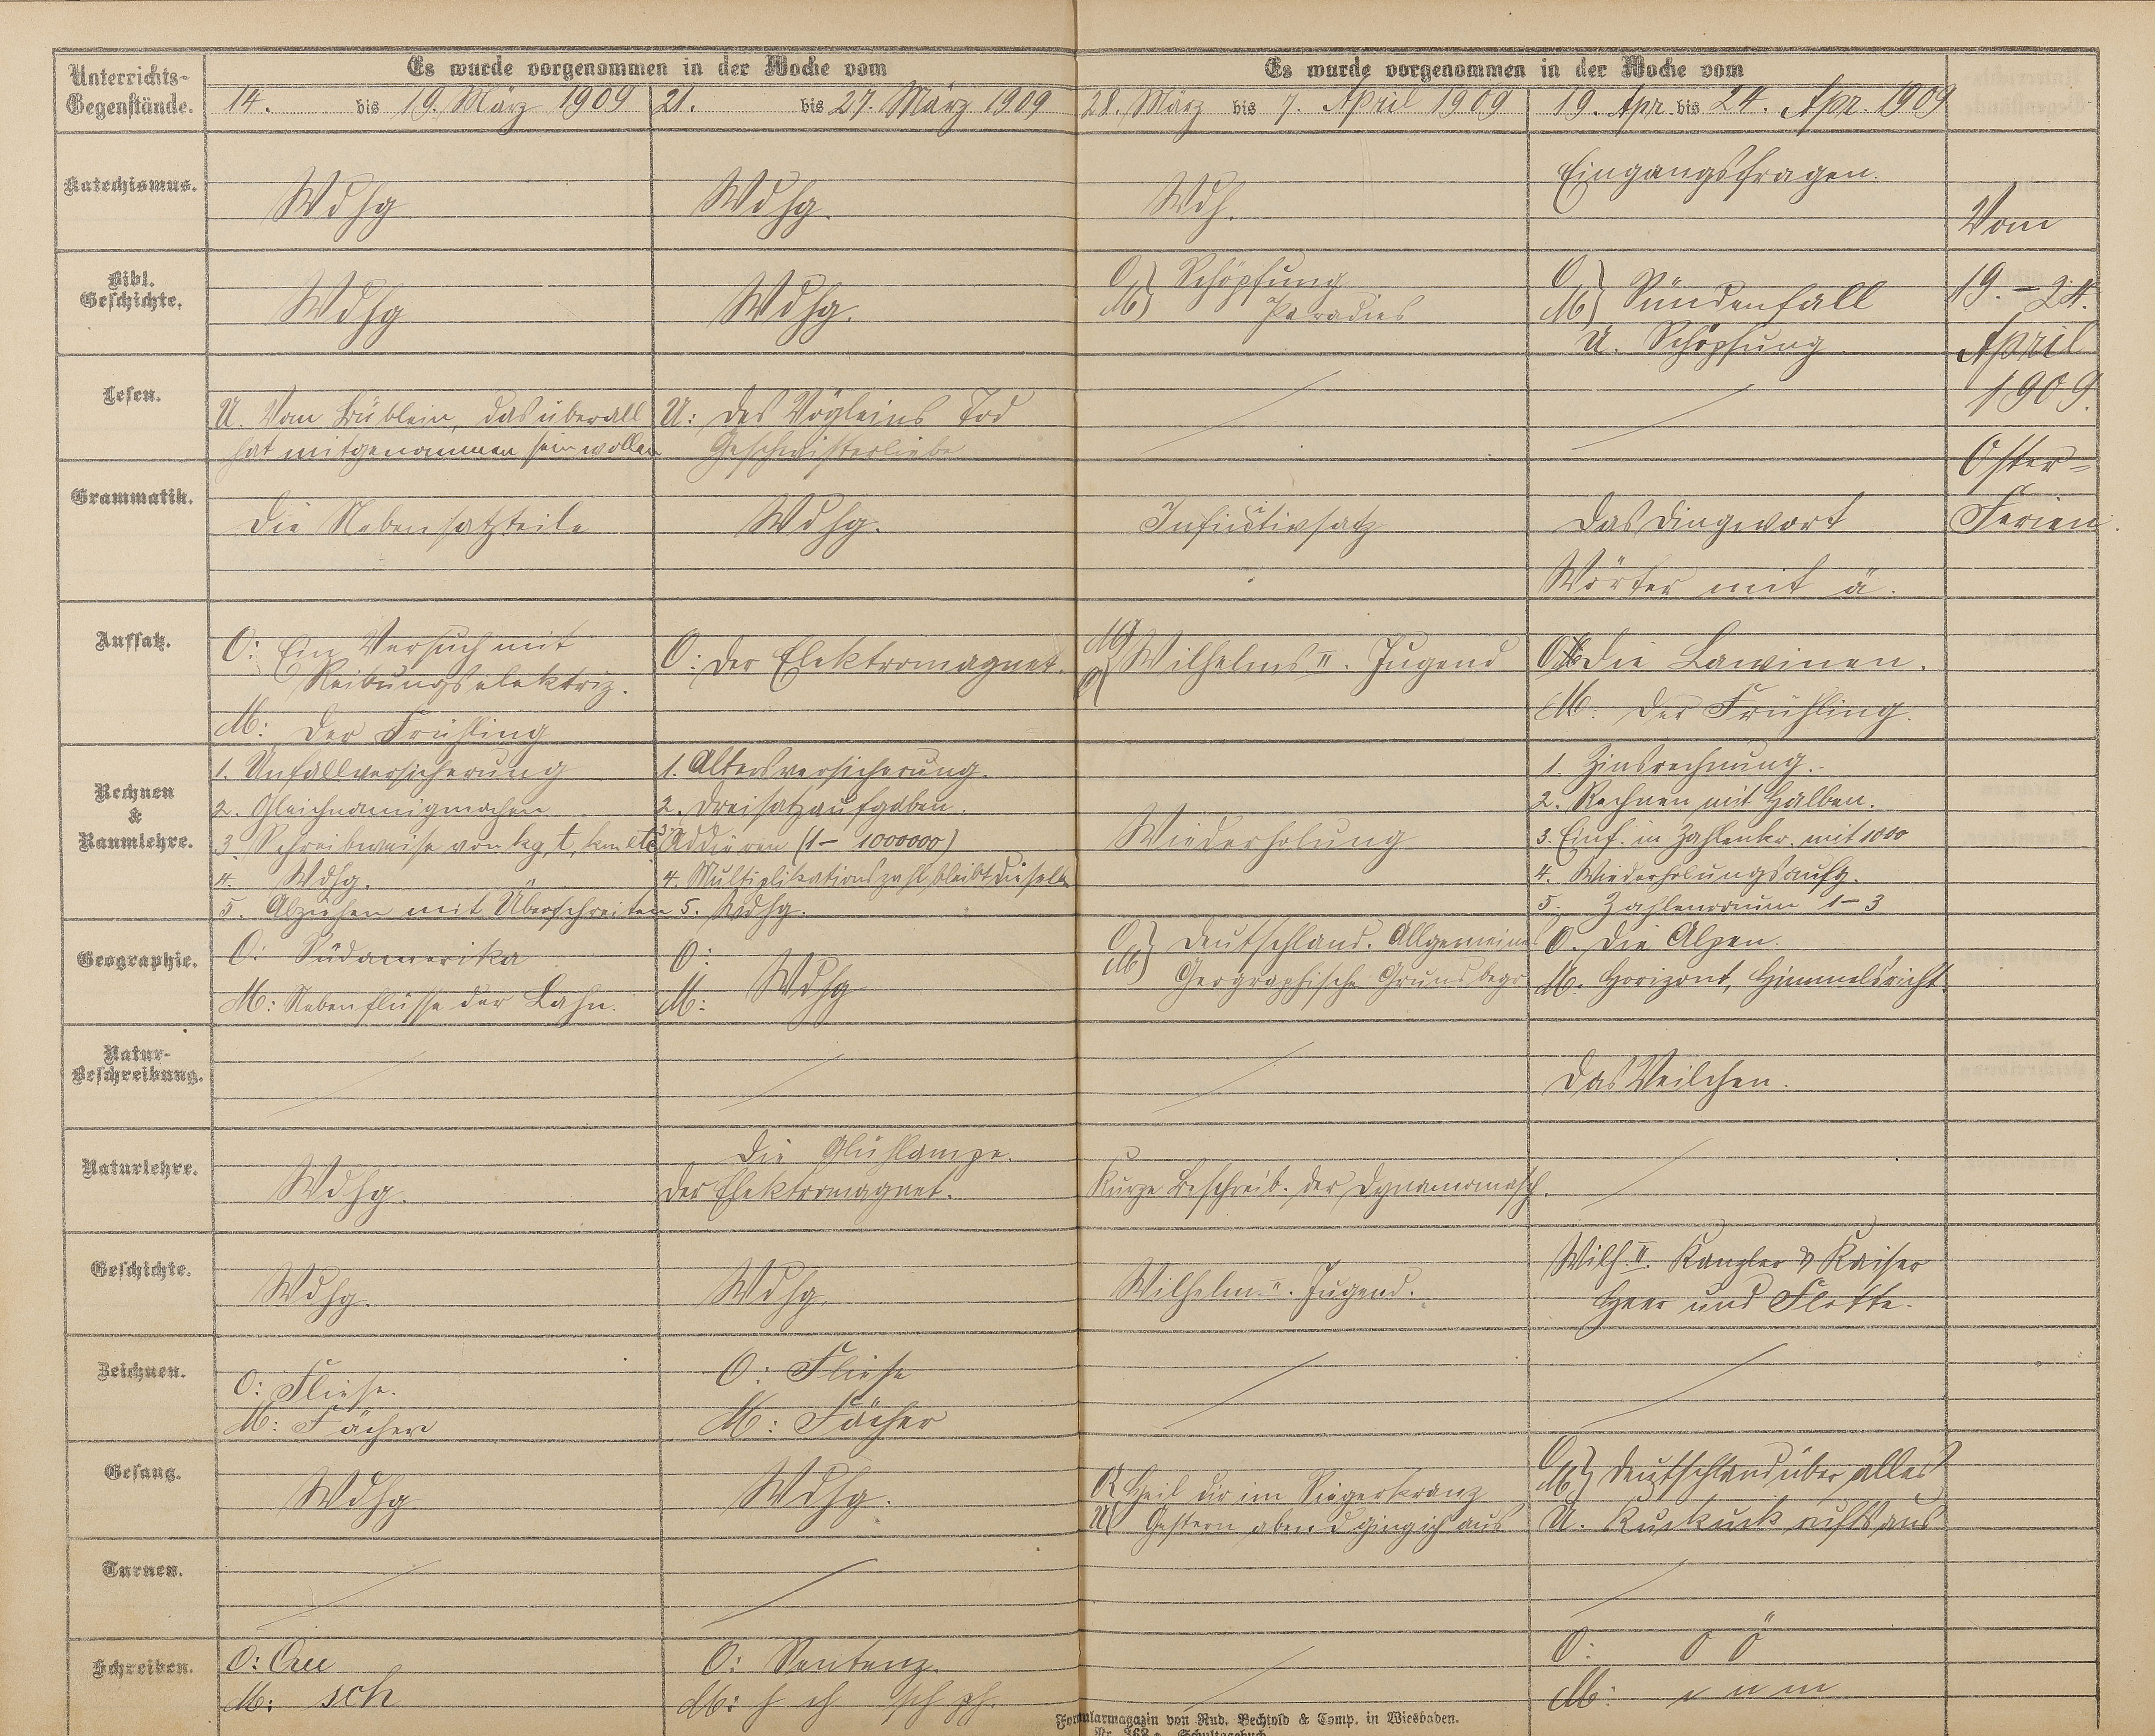 Unterrichts-
Gegenstände.
Es wurde vorgenommen in der Woche vom
Es wurde vorgenommen in der Woche vom
14. bis 19. März 1909
21. bis 27. März 1909
28. März bis 7. April 1909
19. Apr. bis 24. Apr. 1909
Katechismus.
Wdhg
Wdhg.
Wdh.
Eingangsfragen.
Vom
19. – 24.
April
1909.
Oster-
Ferien.
Bibl.
Geschichte.
Wdhg
Wdhg.
O
M} Schöpfung
Paradies
O
M} Sündenfall
U. Schöpfung
Lesen.
U. Vom Büblein, das überall
hat mitgenommen sein wollen
U: Des Vögleins Tod
Geschwisterliebe
Grammatik.
Die Nebensatzteile
Wdhg.
Infinitivsatz
Das Dingwort
Wörter mit ä.
Aufsatz.
O: Ein Versuch mit
Reibungselektriz.
M: Der Frühling
O: Der Elektromagnet.
Wilhelms II. Jugend
O Die Lawinen.
M. Der Frühling.
Rechnen
&
Raumlehre.
1. Unfallversicherung
2. Gleichnamigmachen
3. Schreibweise von kg, t, km etc
4. Wdhg.
5. Abziehen mit Überschreiten
1. Altersversicherung.
2. Dreisatzaufgaben.
3. Addieren (1 – 1000000)
4. Multiplikationszahl bleibt dieselbe
5. Wdhg.
Wiederholung
1. Zinsrechnung.
2. Rechnen mit Halben.
3. Einf. in Zahlenkr. mit 1000
4. Wiederholungsaufg.
5. Zahlenraum 1–3
Geographie.
O: Südamerika
M: Nebenflüsse der Lahn.
O:
M: Wdhg
O
M} Deutschland. Allgemeines
Geographische Grundbegr.
O. Die Alpen.
M. Horizont, Himmelsricht.
Natur-
Beschreibung.
Das Veilchen.
Naturlehre.
Wdhg.
Die Glühlampe.
Der Elektromagnet.
Kurze Beschreib. der Dynamomasch.
Geschichte.
Wdhg.
Wdhg.
Wilhelm II. Jugend.
Wilh. II. Kanzler & Kaiser
Heer und Flotte.
Zeichnen.
O: Fliese.
M: Fächer
O: Fliese
M: Fächer
Gesang.
Wdhg
Wdhg.
Heil dir im Siegerkranz
U Gestern abend ging ich aus
O
M} Deutschland über alles
U. Kuckuck rufts aus
Turnen.
Schreiben.
O: Qu
M: sch
O: Sentenz.
M: h ch sch pf.
O: O Ö
M: v n m
Formularmagazin von Rud. Bechtold & Comp. in Wiesbaden.
Nr. 368 a. Schultagebuch.